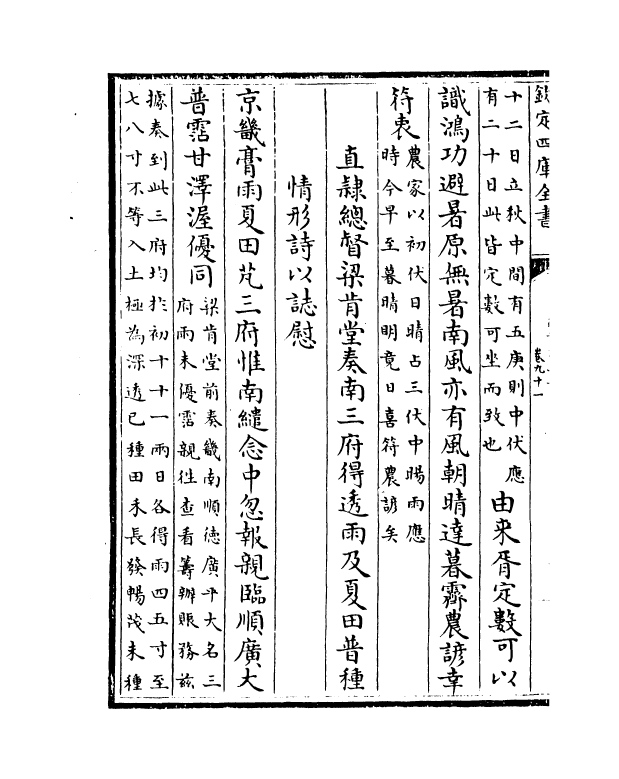 欽定四庫全書
卷九十一
十二日立秋中間有五庚則中伏應
有二十日此皆定數可坐而致也
由来胥定數可以
識鴻功避暑原無暑南風亦有風朝晴達暮霽農諺幸
符衷
農家以初伏日晴占三伏中暘雨應
時今早至暮晴明竟日喜符農諺矣
直隸總督梁肯堂奏南三府得透雨及夏田普種
情形詩以誌慰
京畿膏雨夏田芃三府惟南繾念中忽報親臨順廣大
普霑甘澤渥優同
梁肯堂前奏畿南順徳廣平大名三
府雨未優霑親徃查看籌辦賑務兹
據奏到此三府均扵初十十一兩日各得雨四五寸至
七八寸不等入土極為深透已種田禾長發暢茂未種